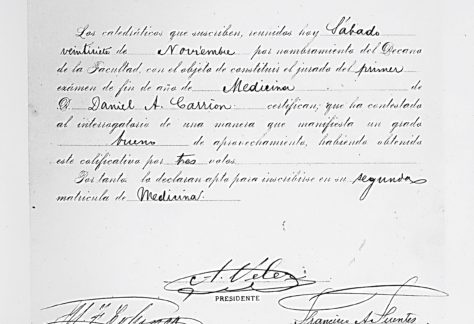 Los catedráticos que suscriben, reunidos hoy Sábado
veintisiete de Noviembre por nombramiento del Decano
de la Facultad, con el objeto de constituir el jurado del primer
exámen de fin de año de Medicina de
D. Daniel A. Carrion certifican; que ha contestado
al interrogatorio de una manera que manifiesta un grado
bueno de aprovechamiento, habiendo obtenido
este calificativo por tres votos.
Por tanto lo declaran apto para inscribirse en su segunda
matrícula de Medicina.
A. Velez
PRESIDENTE
Francisco A. Fuentes